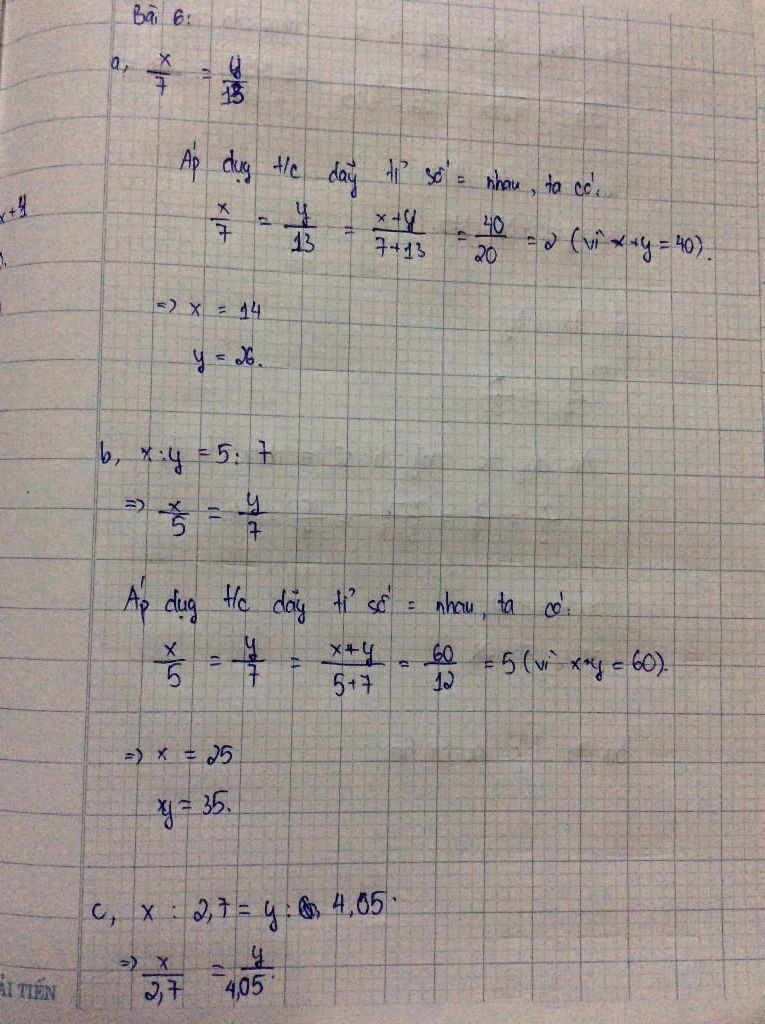 Bài 6:
a, x/7 = y/13
Áp dụg t/c dãy tỉ số = nhau, ta có:
x/7 = y/13 = x+y/7+13 = 40/20 = 2 (vì x+y = 40).
x+y
=> x = 14
y = 26.
b, x:y = 5: 7
=> x/5 = y/7
Áp dụg t/c dãy tỉ số = nhau, ta có:
x/5 = y/7 = x+y/5+7 = 60/12 = 5 (vì x+y = 60).
=> x = 25
y = 35.
c, x : 2,7 = y: 4,05.
=> x/2,7 = y/4,05.
ẢI TIẾN